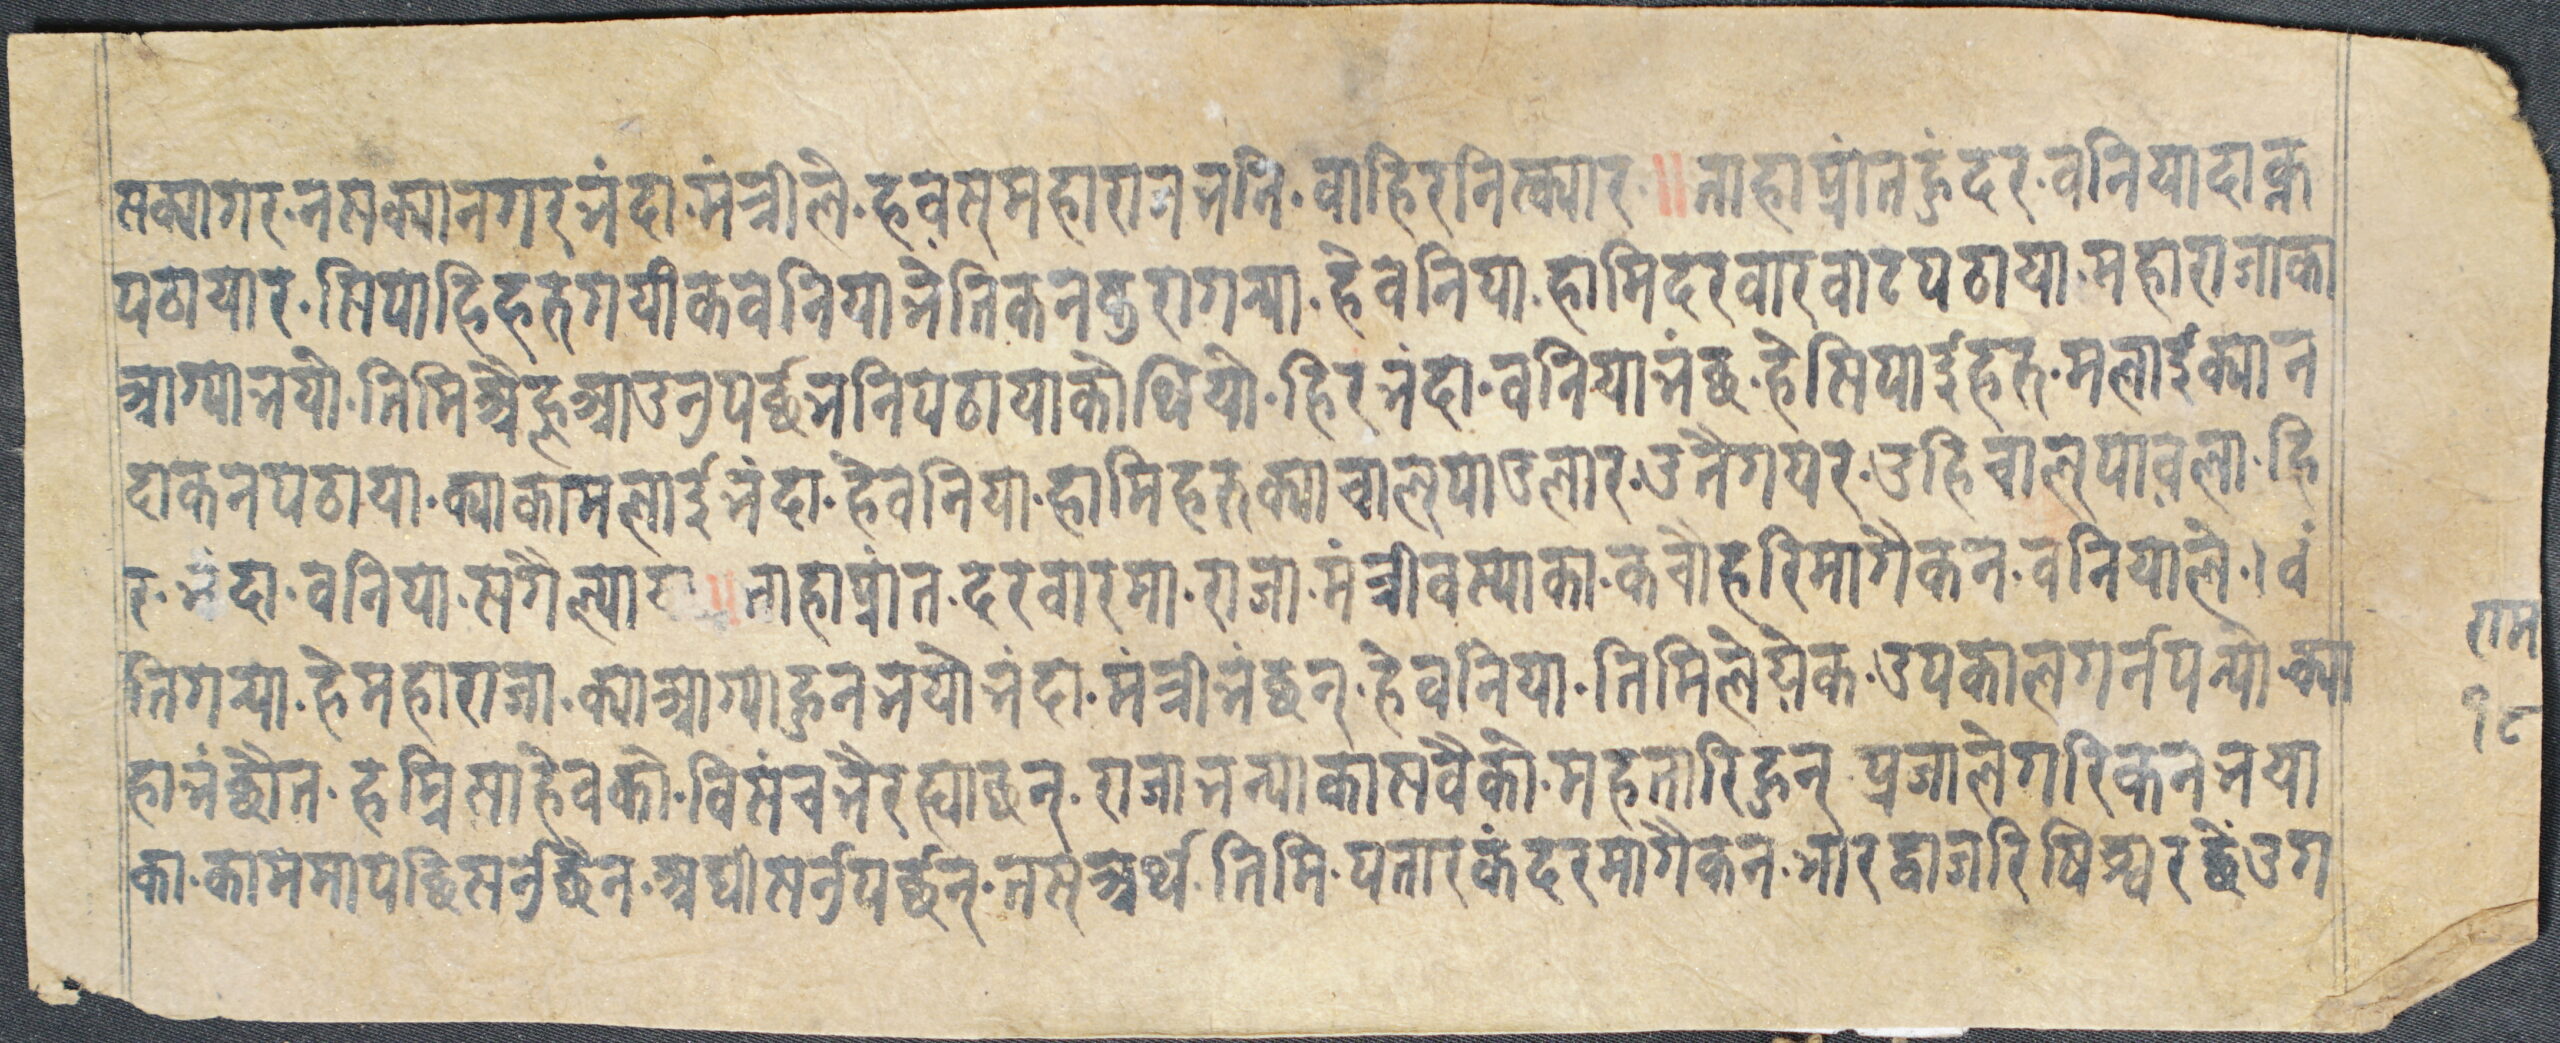 सक्यागर·नसक्यानगर्भंदा·मंत्रीले·हवस्महाराजभनि·वाहिरनिस्क्यार·॥ताहाप्रांतहुंदर·वनियादाक्न
पठायार·सिपाहिहरुगयीकवनियाभैतिकनकुरागर्‍या·हेवनिया·हामिदरवारवाटपठाया·महाराजाका
आग्याभयो·तिमिअैह्लआउनुपर्छभनिपठायाकोथियो·हिरभंदा·वनियाभंछ·हेसिपाइंहरु·मलाइंक्यान
दाकनपठाया·क्याकाममलाईभंदा·हेवनिया·हामिहरुक्याचाल्पाउलार·उनैगयर·उहिचाल्पावला·हि
र·भंदा·वनिया·सगैल्याया॥ताहाप्रांत·दरवारमा·राजा·मंत्रीवस्याका·कचौहरिमागैकन·वनियाले·।वं
तिगर्‍या·हेमहाराजा·क्याआग्याहुनभयोभंदा·मंत्रीभंछन्·हेवनिया·तिमिलेयेक·उपकालगर्नपर्‍यो·क्या
हाभंछौन·हम्रिसाहेवको·विसंचभैरह्याछन्·राजाभन्याकासवैको·महतारिहुन्·प्रजालेगरिकनभया
का·काममापछिसर्नुछैन·अघीसर्नुपर्छन्·तस्अर्थ·तिमि·पतारकंदरमागैकन·भारद्वाजरिषिअ्वरछेंउग
राम
१८